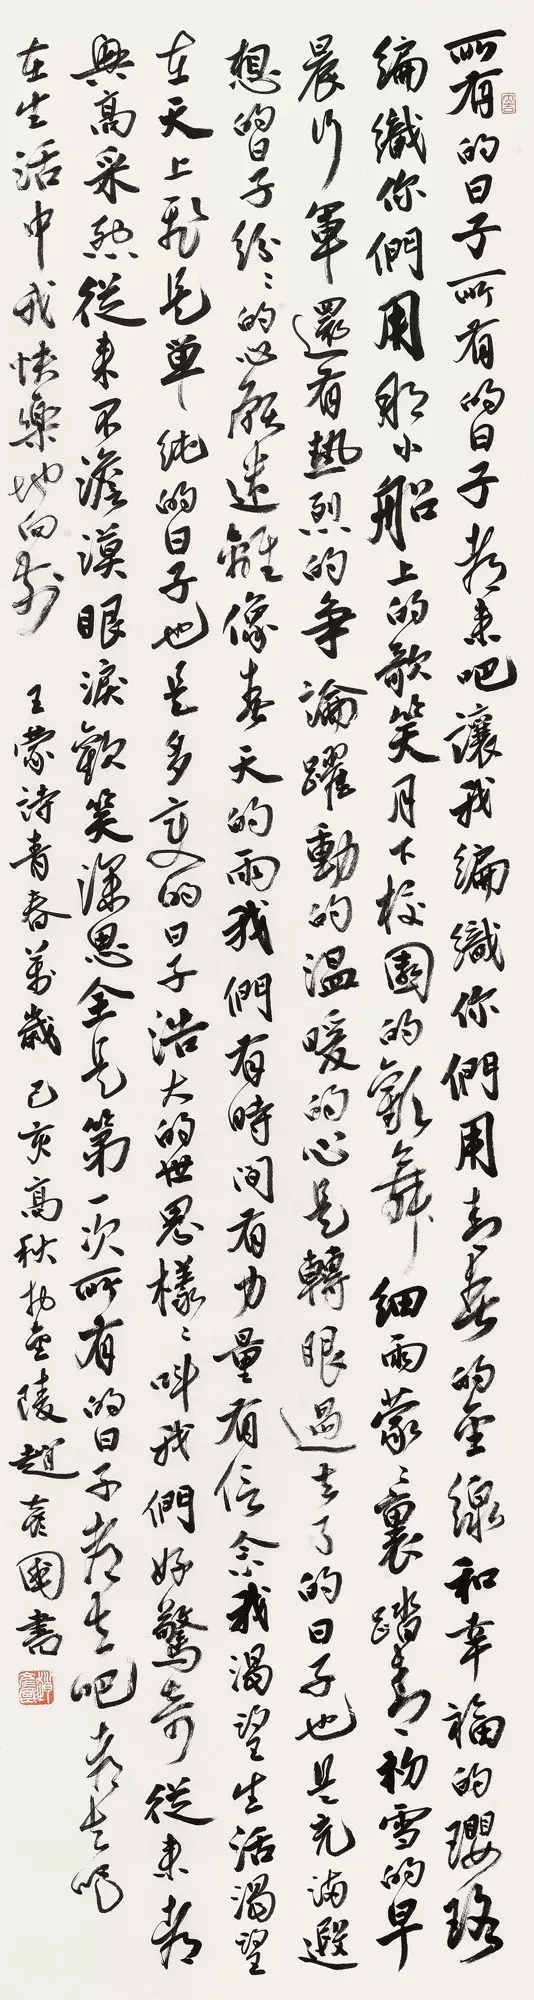 所有的日子所有的日子都來吧讓我編織你們用青春的金線和幸福的瓔珞
編織你們用那小船上的歌笑月下校園的歡舞細雨蒙〻裏踏青初雪的早
晨行軍還有熱烈的爭論躍動的溫暖的心是轉眼過去了的日子也是充滿遐
想的日子紛〻的心願迷離像春天的雨我們有時間有力量有信念我渴望生活渴望
在天上飛是單純的日子也是多變的日子浩大的世界樣〻叫我們好驚奇從來都
興高采烈從來不澹漠眼淚歡笑深思全是第一次所有的日子都去吧都去吧
在生活中我快樂地向前 王蒙詩青春萬歲 己亥高秋於金陵趙彥國書